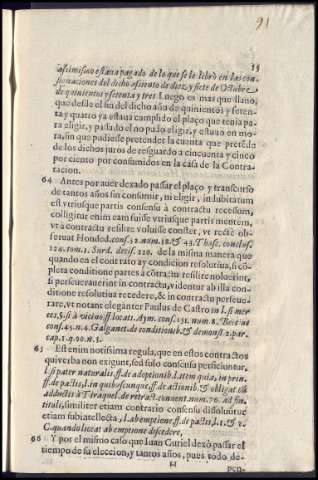 91
15
assimismo estaua pagado de lo que se le librò en las con-
signaciones del dicho assiento de diez y siete de Octubre
de quinientos y setenta y tres. Luego es mas que llano,
que desde el fin del dicho año de quinientos y seten-
ta y quatro ya estaua cumplido el plaço que tenia pa-
ra eligir, y passado el no pudo eligir, y estuuo en mo-
ra, sin que pudiesse pretender la cuenta que pretẽde
de los dichos juros de resguardo a cincuenta y cinco
por ciento por consumidos en la casa de la Contra-
tacion.
64 Antes por auer dexado passar el plaço y transcurso
de tantos años sin consumir, ni elegir, indubitatum
est vtriusque partis consensu à contractu recessum,
colligitur enim eam fuisse vtriusque partis mentem,
vt à contractu resilire voluisse conster, vt rectè ob-
seruat Honded. cons. 32. num. 18. & 43. Thusc. conclus.
120. tom. 2. Surd. decis. 229. de la misma manera que
quando en el contrato ay condicion resolutiua, si cõ-
pleta conditione partes à cõtractu resilire noluerint,
si perseuerauerint in contractu, videntur ab illa con-
ditione resolutiua recedere, & in contractu perseue-
rare, vt notant eleganter Paulus de Castro in l. si mer-
ces, §. si à vicino ff. locati. Aym. cons. 151. num. 8. Beroius
cons. 45. n. 8. Galganet. de conditionib. & demonst. 2. par.
cap. 1. q. 10. n. 5.
65 Est enim notissima regula, que en estos contractos
qui verba non exigunt, sed solo consensu perficiuntur.
l. si pater naturalis. ff. de adoptionib. l. item quia, in prin.
ff. de pactis, l. in quibuscunque, ff. de actionib. & obligat. cũ
adductis à Tiraquel. de retract. conuent. num. 76. ad fin.
tituli, similiter etiam contrario consensu dissoluitur
etiam subintellecta, l. ab emptione, ff. de pactis, l. 1. & 2.
C. quando liceat ab emptione discedere,
66 Y por el mismo caso que Iuan Curiel dexò passar el
tiempo de su eleccion, y tantos años, pues todo de-
H
pen-